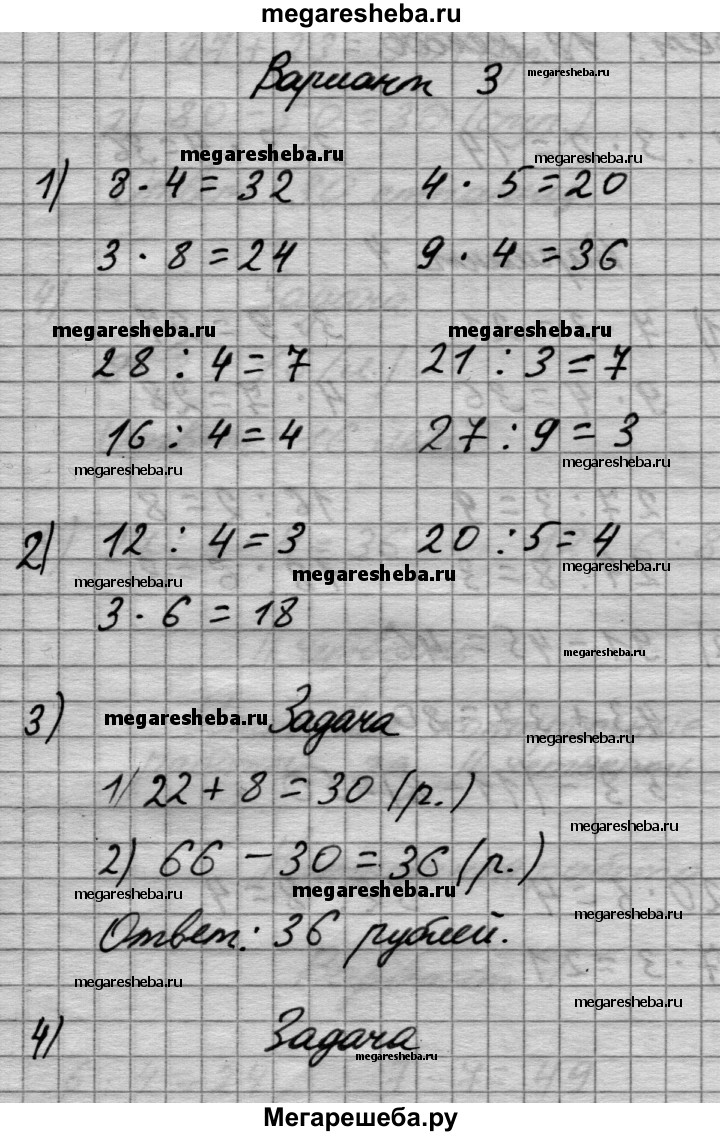 megaresheba.ru
Вариант 3 megaresheba.ru
megaresheba.ru megaresheba.ru
1) 8 · 4 = 32 4 · 5 = 20
3 · 8 = 24 9 · 4 = 36
megaresheba.ru megaresheba.ru
28 : 4 = 7 21 : 3 = 7
16 : 4 = 4 27 : 9 = 3
megaresheba.ru megaresheba.ru
2) 12 : 4 = 3 20 : 5 = 4
megaresheba.ru megaresheba.ru megaresheba.ru
3 · 6 = 18
megaresheba.ru
3) megaresheba.ru Задача
megaresheba.ru
1) 22 + 8 = 30 (р.)
megaresheba.ru
2) 66 - 30 = 36 (р.)
megaresheba.ru megaresheba.ru megaresheba.ru
Ответ: 36 рублей.
megaresheba.ru megaresheba.ru
4) Задача
megaresheba.ru
Мегарешеба.ру